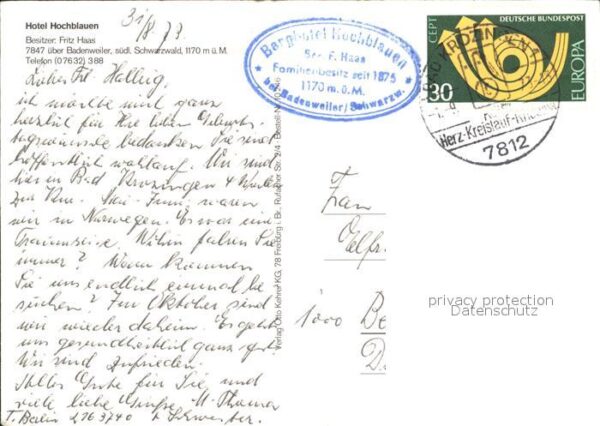 31/8 73
Hotel Hochblauen
Besitzer: Fritz Haas
7847 über Badenweiler, südl. Schwarzwald, 1170 m ü.M.
Telefon (07632) 388
Berghotel Hochblauen
Bes. F. Haas
Familienbesitz seit 1875
1170 m.ü.M.
bei Badenweiler/Schwarzw.
CEPT
DEUTSCHE BUNDESPOST
30
EUROPA
BAD KROZINGEN
Herz-Kreislauf
7812
Liebes Frl.
ich möchte mich ganz
herzlich für Ihre lieben Geburts-
tagswünsche bedanken Sie sind
hoffentlich wohlauf. Wir sind
hier in Bad Krozingen 4 Wochen
zur Kur. Mai-Juni waren
wir in Norwegen. Es war eine
Traumreise. Wohin fahren Sie
immer? Wann kommen
Sie uns endlich einmal be
suchen? Im Oktober sind
wir wieder daheim. Es geht
uns gesundheitlich ganz gut.
Wir sind zufrieden.
Alles Gute für Sie und
viele liebe Grüße
T. Berlin 2163740 Schwester.
Verlag Otto Kehrer KG, 78 Freiburg i. Br., Rufacher Str. 2/4
Frau
1000 Be
D
privacy protection
Datenschutz